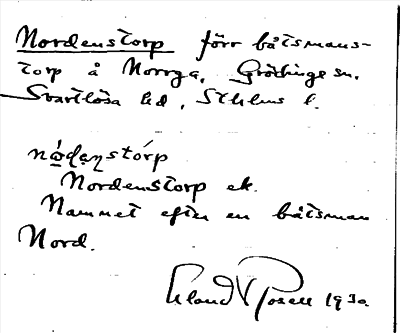 Nordenstorp förr båtsmans-
torp å Norrga, Grödinge sn.
Svartlösa hd, Sthlms l.
nǿdęnstórp
Nordenstorp ek.
Namnet efter en båtsman
Nord.
Erland V Rosell 1930